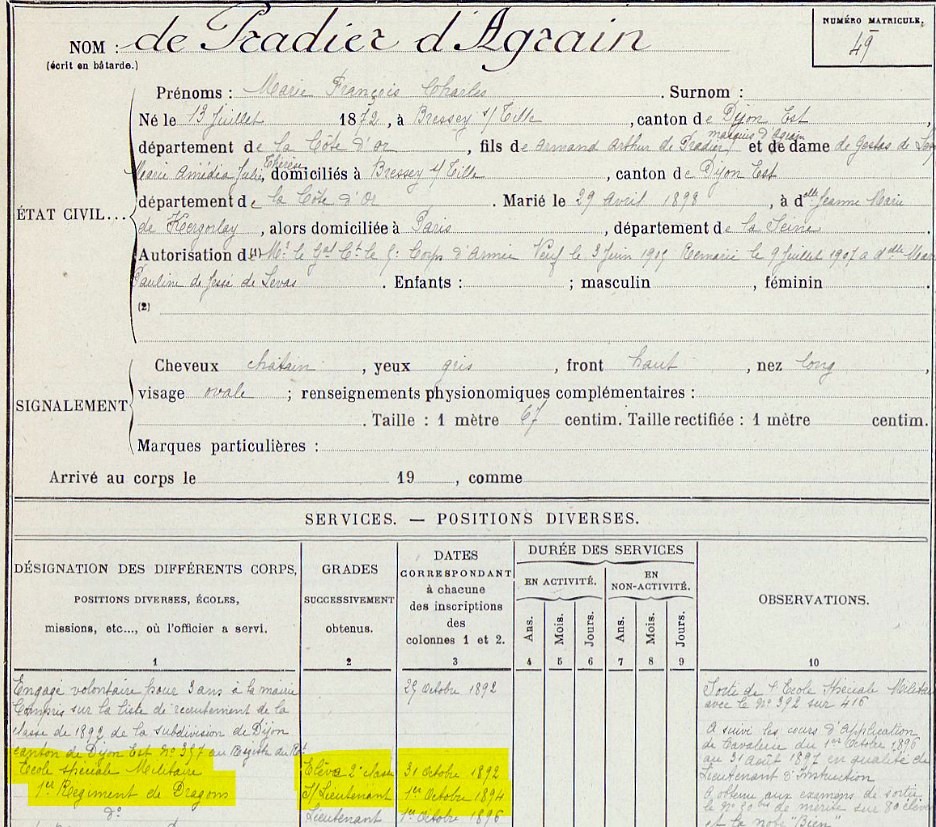 NOM : de Pradier d'Agrain
(écrit en bâtarde.)
NUMÉRO MATRICULE,
45
Prénoms : Marie François Charles . Surnom :
Né le 13 Juillet 1872, à Bressey s/ Tille , canton de Dijon Est ,
département de la Côte d'Or , fils de Armand Arthur de Pradier marquis d'Agrain et de dame de Gestas de
Marie Amédia Thérèse, domiciliés à Bressey s/ Tille , canton de Dijon Est
département de la Côte d'Or . Marié le 29 Avril 1898 , à dlle Jeanne Marie
de Kergorlay , alors domiciliée à Paris , département de la Seine
Autorisation d (1) Mr le Gal Ct le 5e Corps d'Armée Veuf le 3 Juin Remarié le 9 Juillet 1907 à dlle
Pauline de Jessé de Levas . Enfants : ; masculin , féminin .
(2)
ÉTAT CIVIL...
Cheveux châtain , yeux gris , front haut , nez long ,
visage ovale ; renseignements physionomiques complémentaires :
SIGNALEMENT
. Taille : 1 mètre 67 centim. Taille rectifiée : 1 mètre centim.
Marques particulières :
Arrivé au corps le 19 , comme
SERVICES. — POSITIONS DIVERSES.
DÉSIGNATION DES DIFFÉRENTS CORPS,
POSITIONS DIVERSES, ÉCOLES,
missions, etc..., où l'officier a servi.
1
GRADES
SUCCESSIVEMENT
obtenus.
2
DATES
CORRESPONDANT
à chacune
des inscriptions
des
colonnes 1 et 2.
3
DURÉE DES SERVICES
EN ACTIVITÉ.
EN
NON-ACTIVITÉ.
Ans. Mois. Jours. Ans. Mois. Jours.
4 5 6 7 8 9
OBSERVATIONS.
10
Engagé volontaire pour 3 ans à la mairie 27 Octobre 1892
Compris sur la liste de recrutement de la
classe de 1892 de la subdivision de Dijon
canton de Dijon Est No 357 au Registre du
Ecole spéciale Militaire Elève 2e classe 31 Octobre 1892
1er Régiment de Dragons S/Lieutenant 1er Octobre 1894
do Lieutenant 1er Octobre 1896
Sorti de l'Ecole Spéciale Militaire
avec le No 392 sur 416
A suivi les cours d'Application
de Cavalerie du 1er Octobre 1896
au 31 août 1897 en qualité de
Lieutenant d'Instruction
A obtenu aux examens de sortie
le No 80 de mérite sur 80 élèves
et la note "Bien"